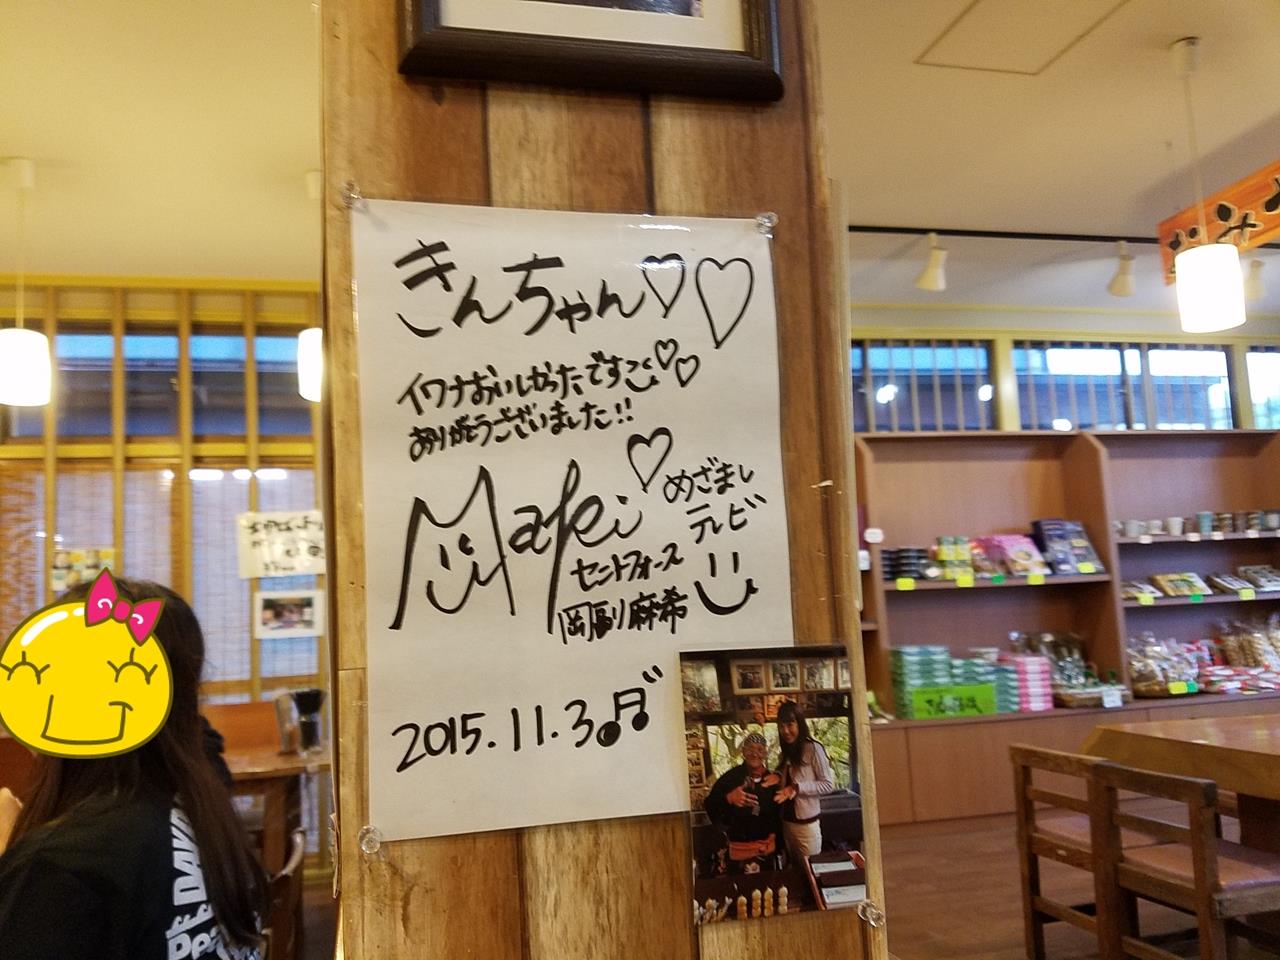 きんちゃん♡♡
イワナおいしかったですこ♡♡
ありがとうございました!!
Maki♡
めざまし
テレビ
セントフォース
岡副麻希
2015.11.3